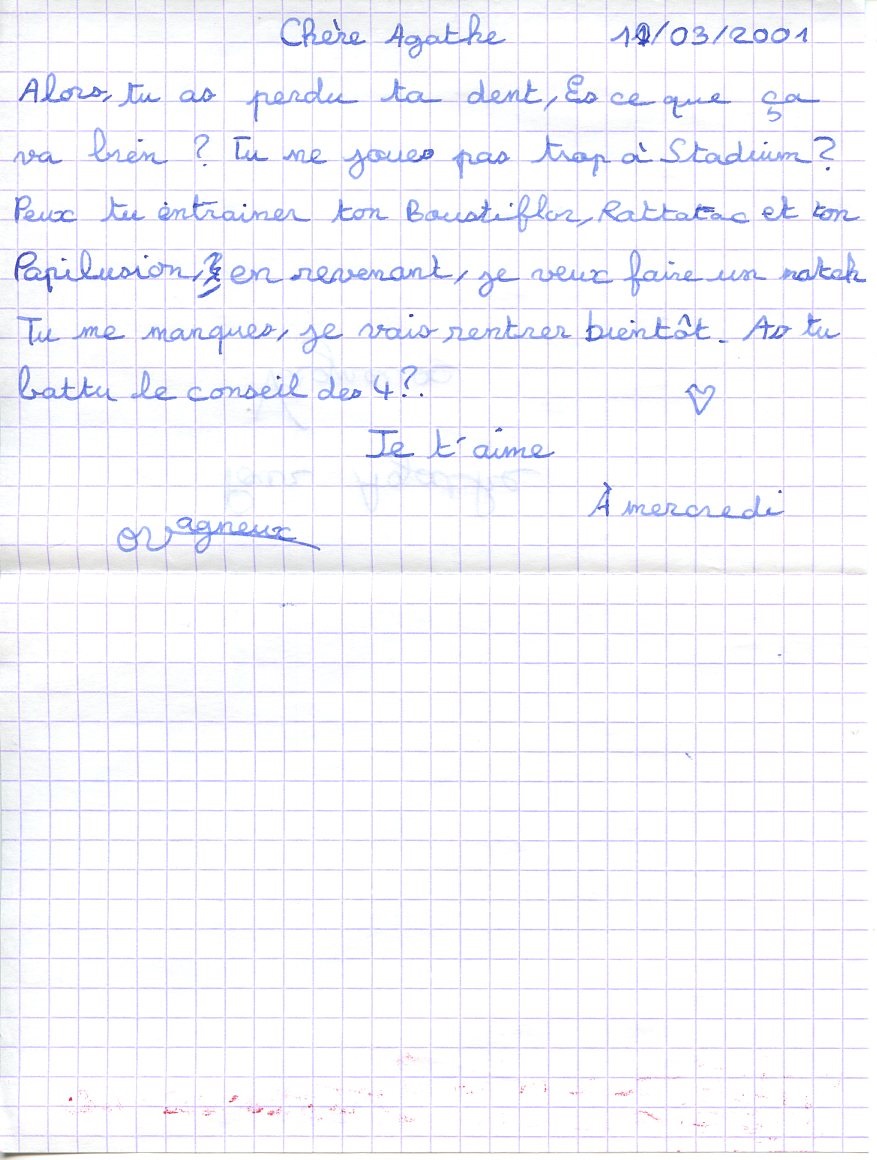 Chère Agathe 11/03/2001
Alors, tu as perdu ta dent, Es ce que ça
va bien ? Tu ne joues pas trop à Stadium ?
Peux tu entrainer ton Boustiflor, Rattatac et ton
Papilusion, en revenant, je veux faire un match
Tu me manques, je vais rentrer bientôt. As tu
battu le conseil des 4?.
Je t'aime
À mercredi
agneux